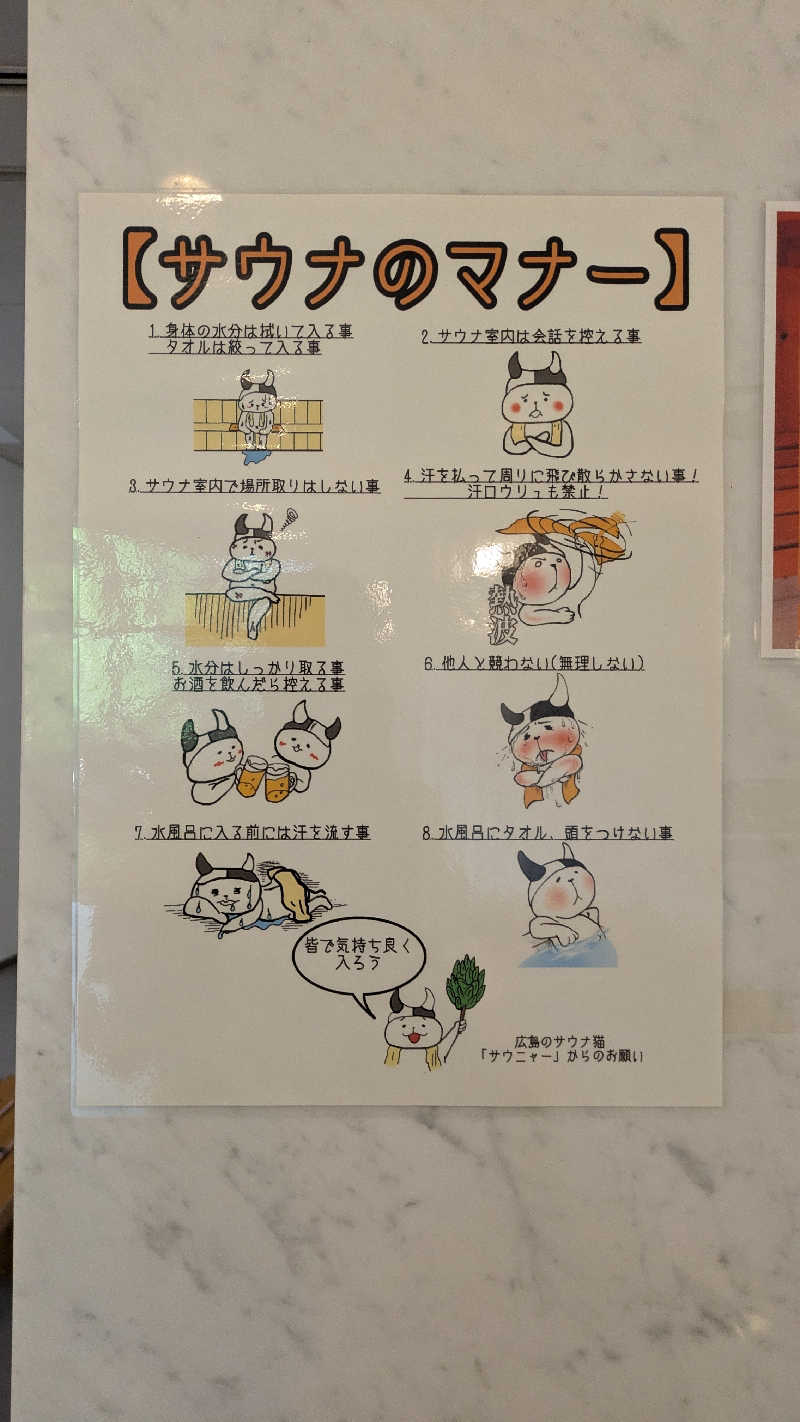 【サウナのマナー】
1. 身体の水分は拭いて入る事
タオルは絞って入る事
2. サウナ室内は会話を控える事
3. サウナ室内で場所取りはしない事
4. 汗を払って周りに飛び散らかさない事！
汗ロウリュも禁止！
熱波
5. 水分はしっかり取る事
お酒を飲んだら控える事
6. 他人と競わない(無理しない)
7. 水風呂に入る前には汗を流す事
8. 水風呂にタオル、頭をつけない事
皆で気持ち良く
入ろう
広島のサウナ猫
「サウニャー」からのお願い